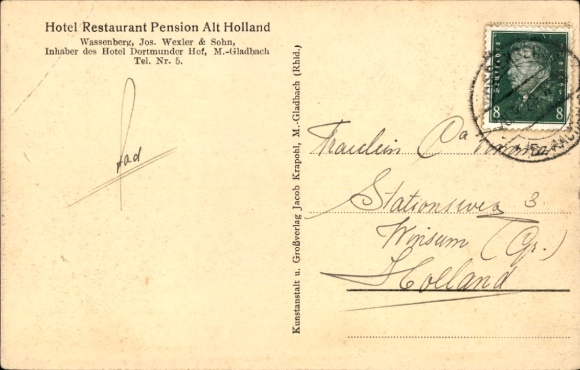 Hotel Restaurant Pension Alt Holland
Wassenberg, Jos. Wexler & Sohn,
Inhaber des Hotel Dortmunder Hof, M.-Gladbach
Tel. Nr. 5.
Kunstanstalt u. Großverlag Jacob Krapohl, M.-Gladbach (Rhld.)
8 8
Fraulein
Stationsweg 3
Winsum (Gr.)
Holland